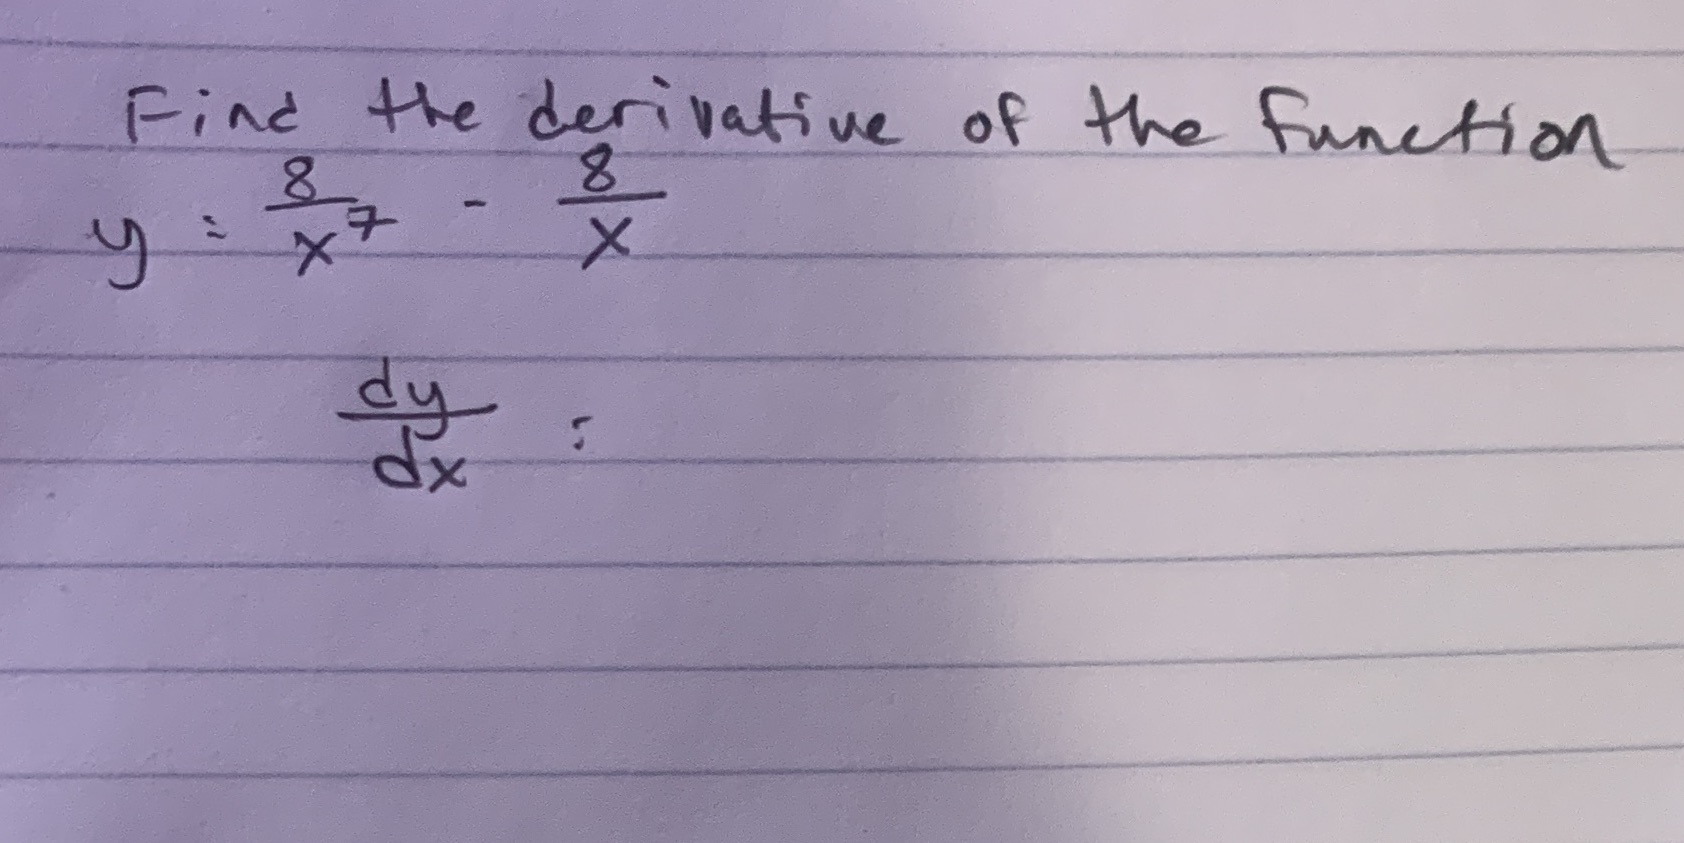 Find the derivative of the function
y = 8/x^7 - 8/x
dy/dx =